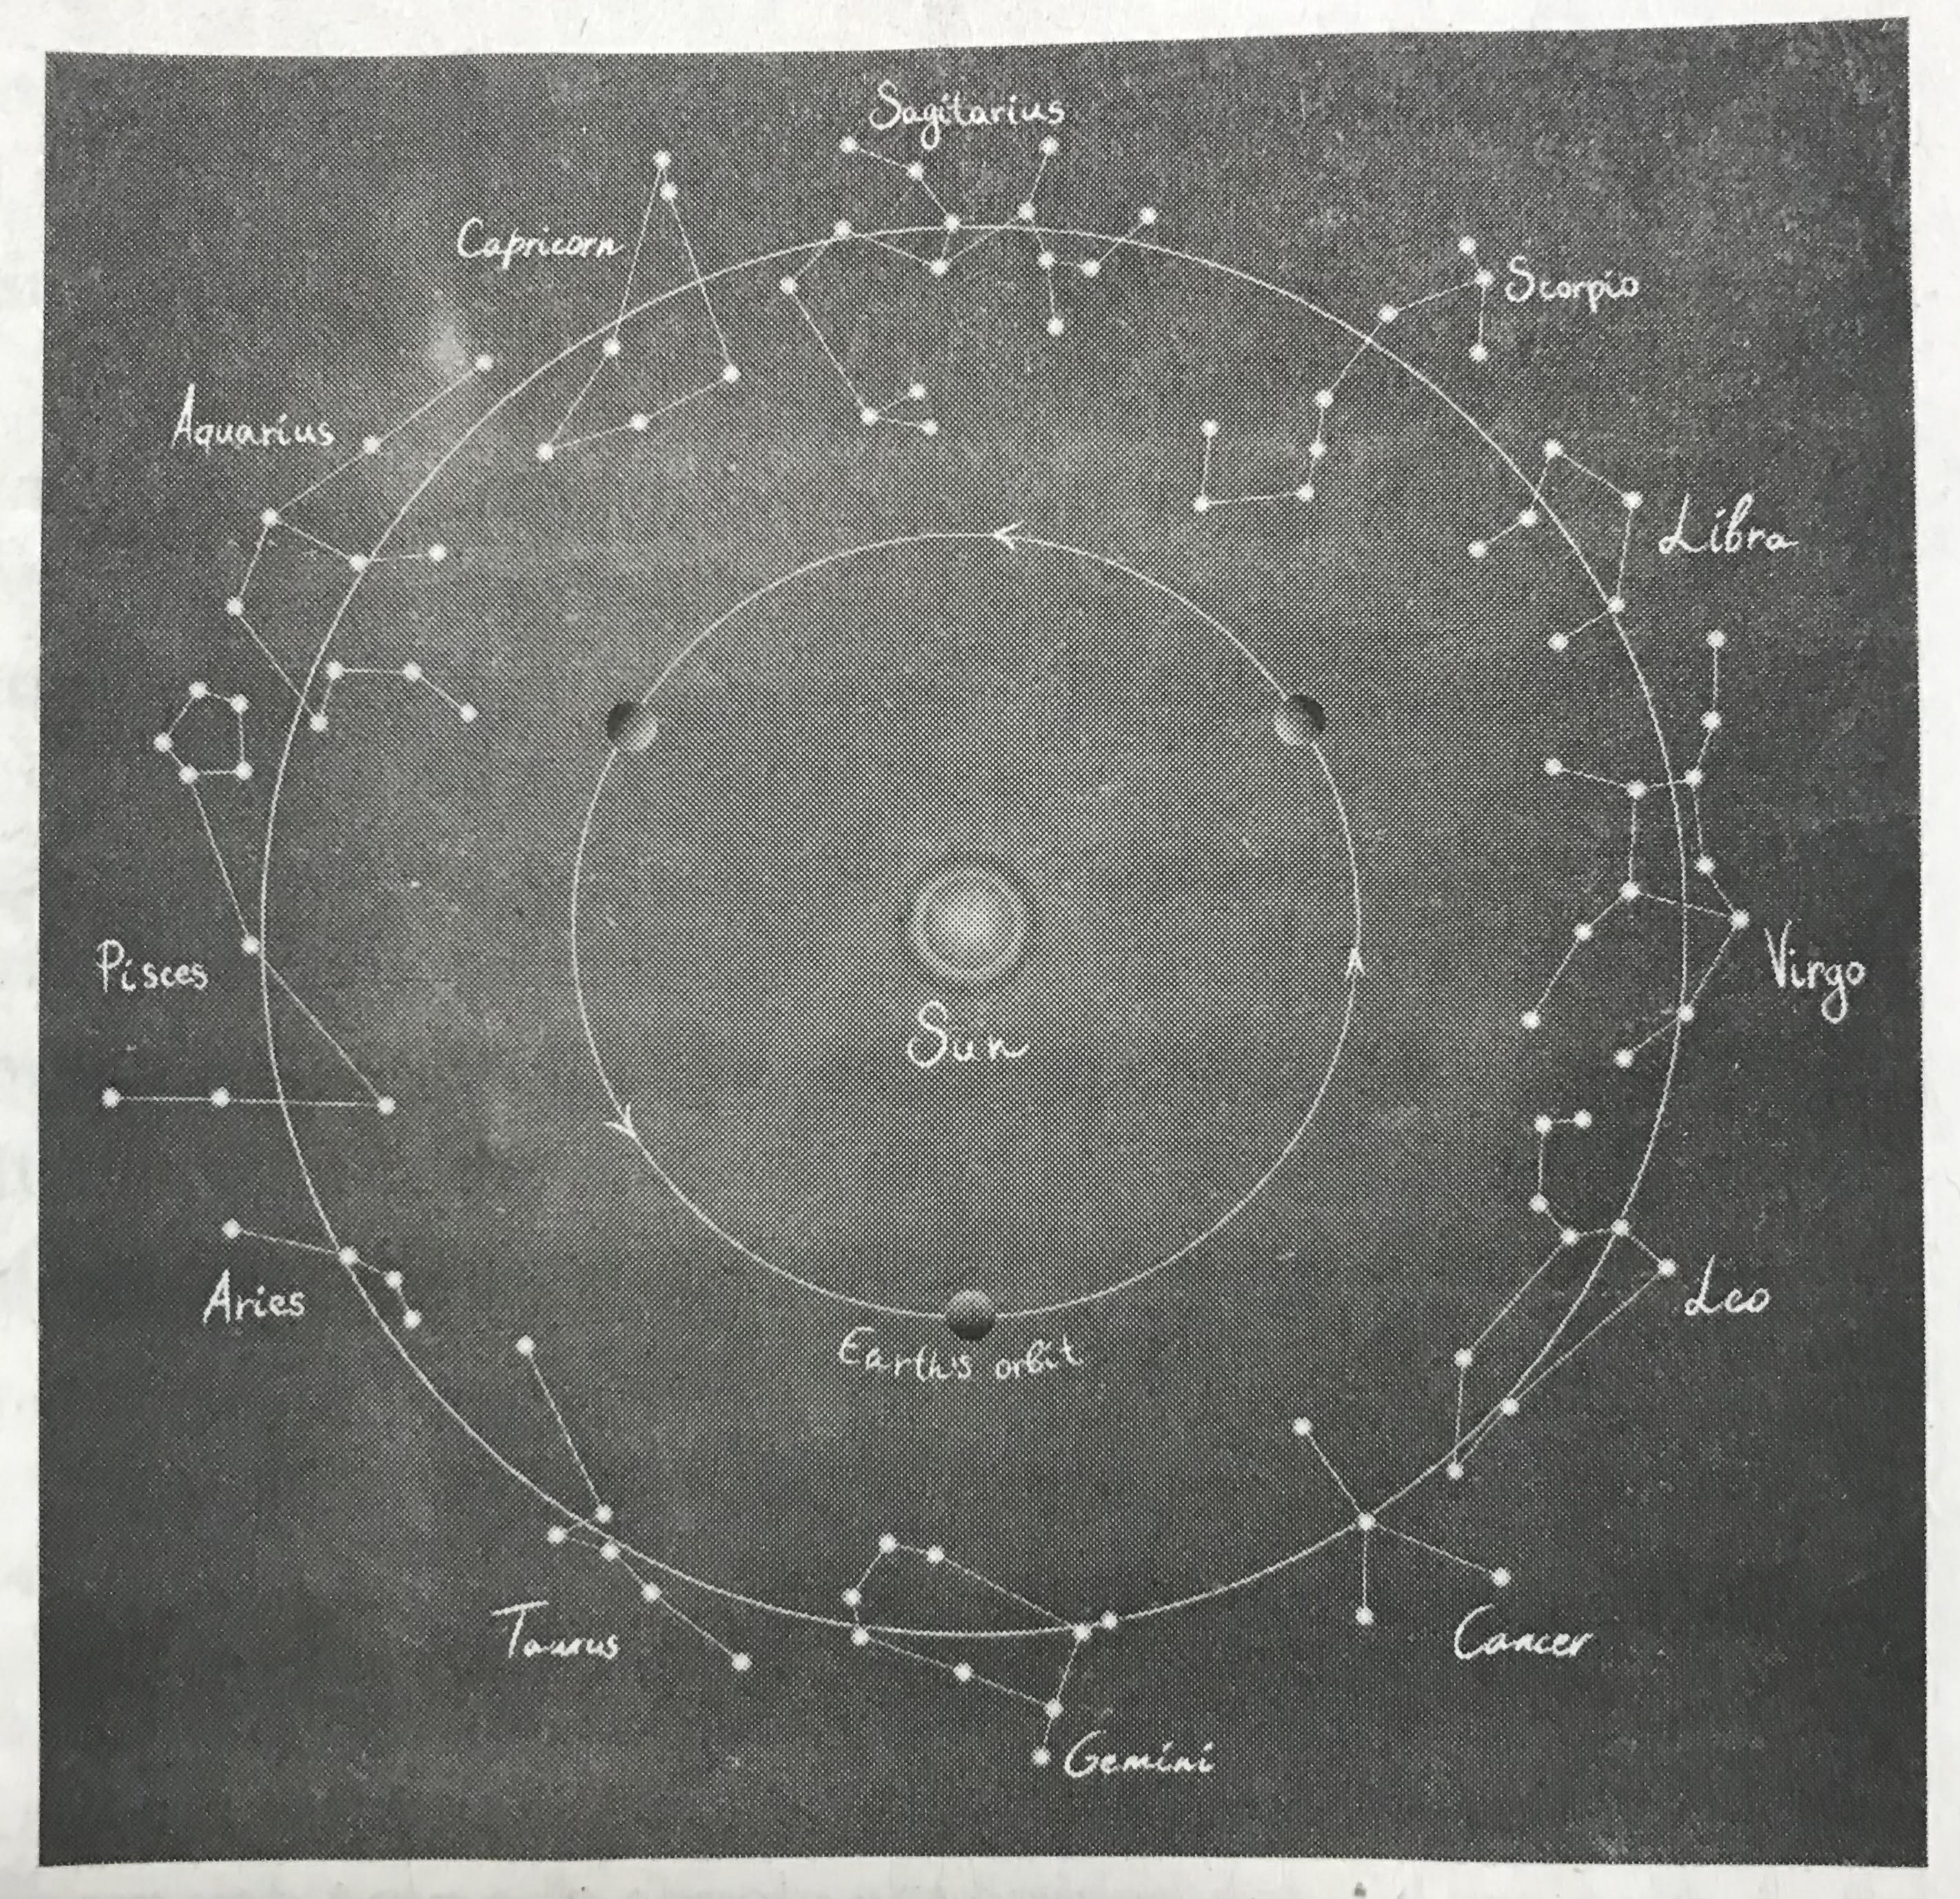 Sagitarius
Capricorn
Scorpio
Aquarius
Libra
Pisces
Virgo
Sun
Aries
Leo
Earth's orbit
Taurus
Cancer
Gemini